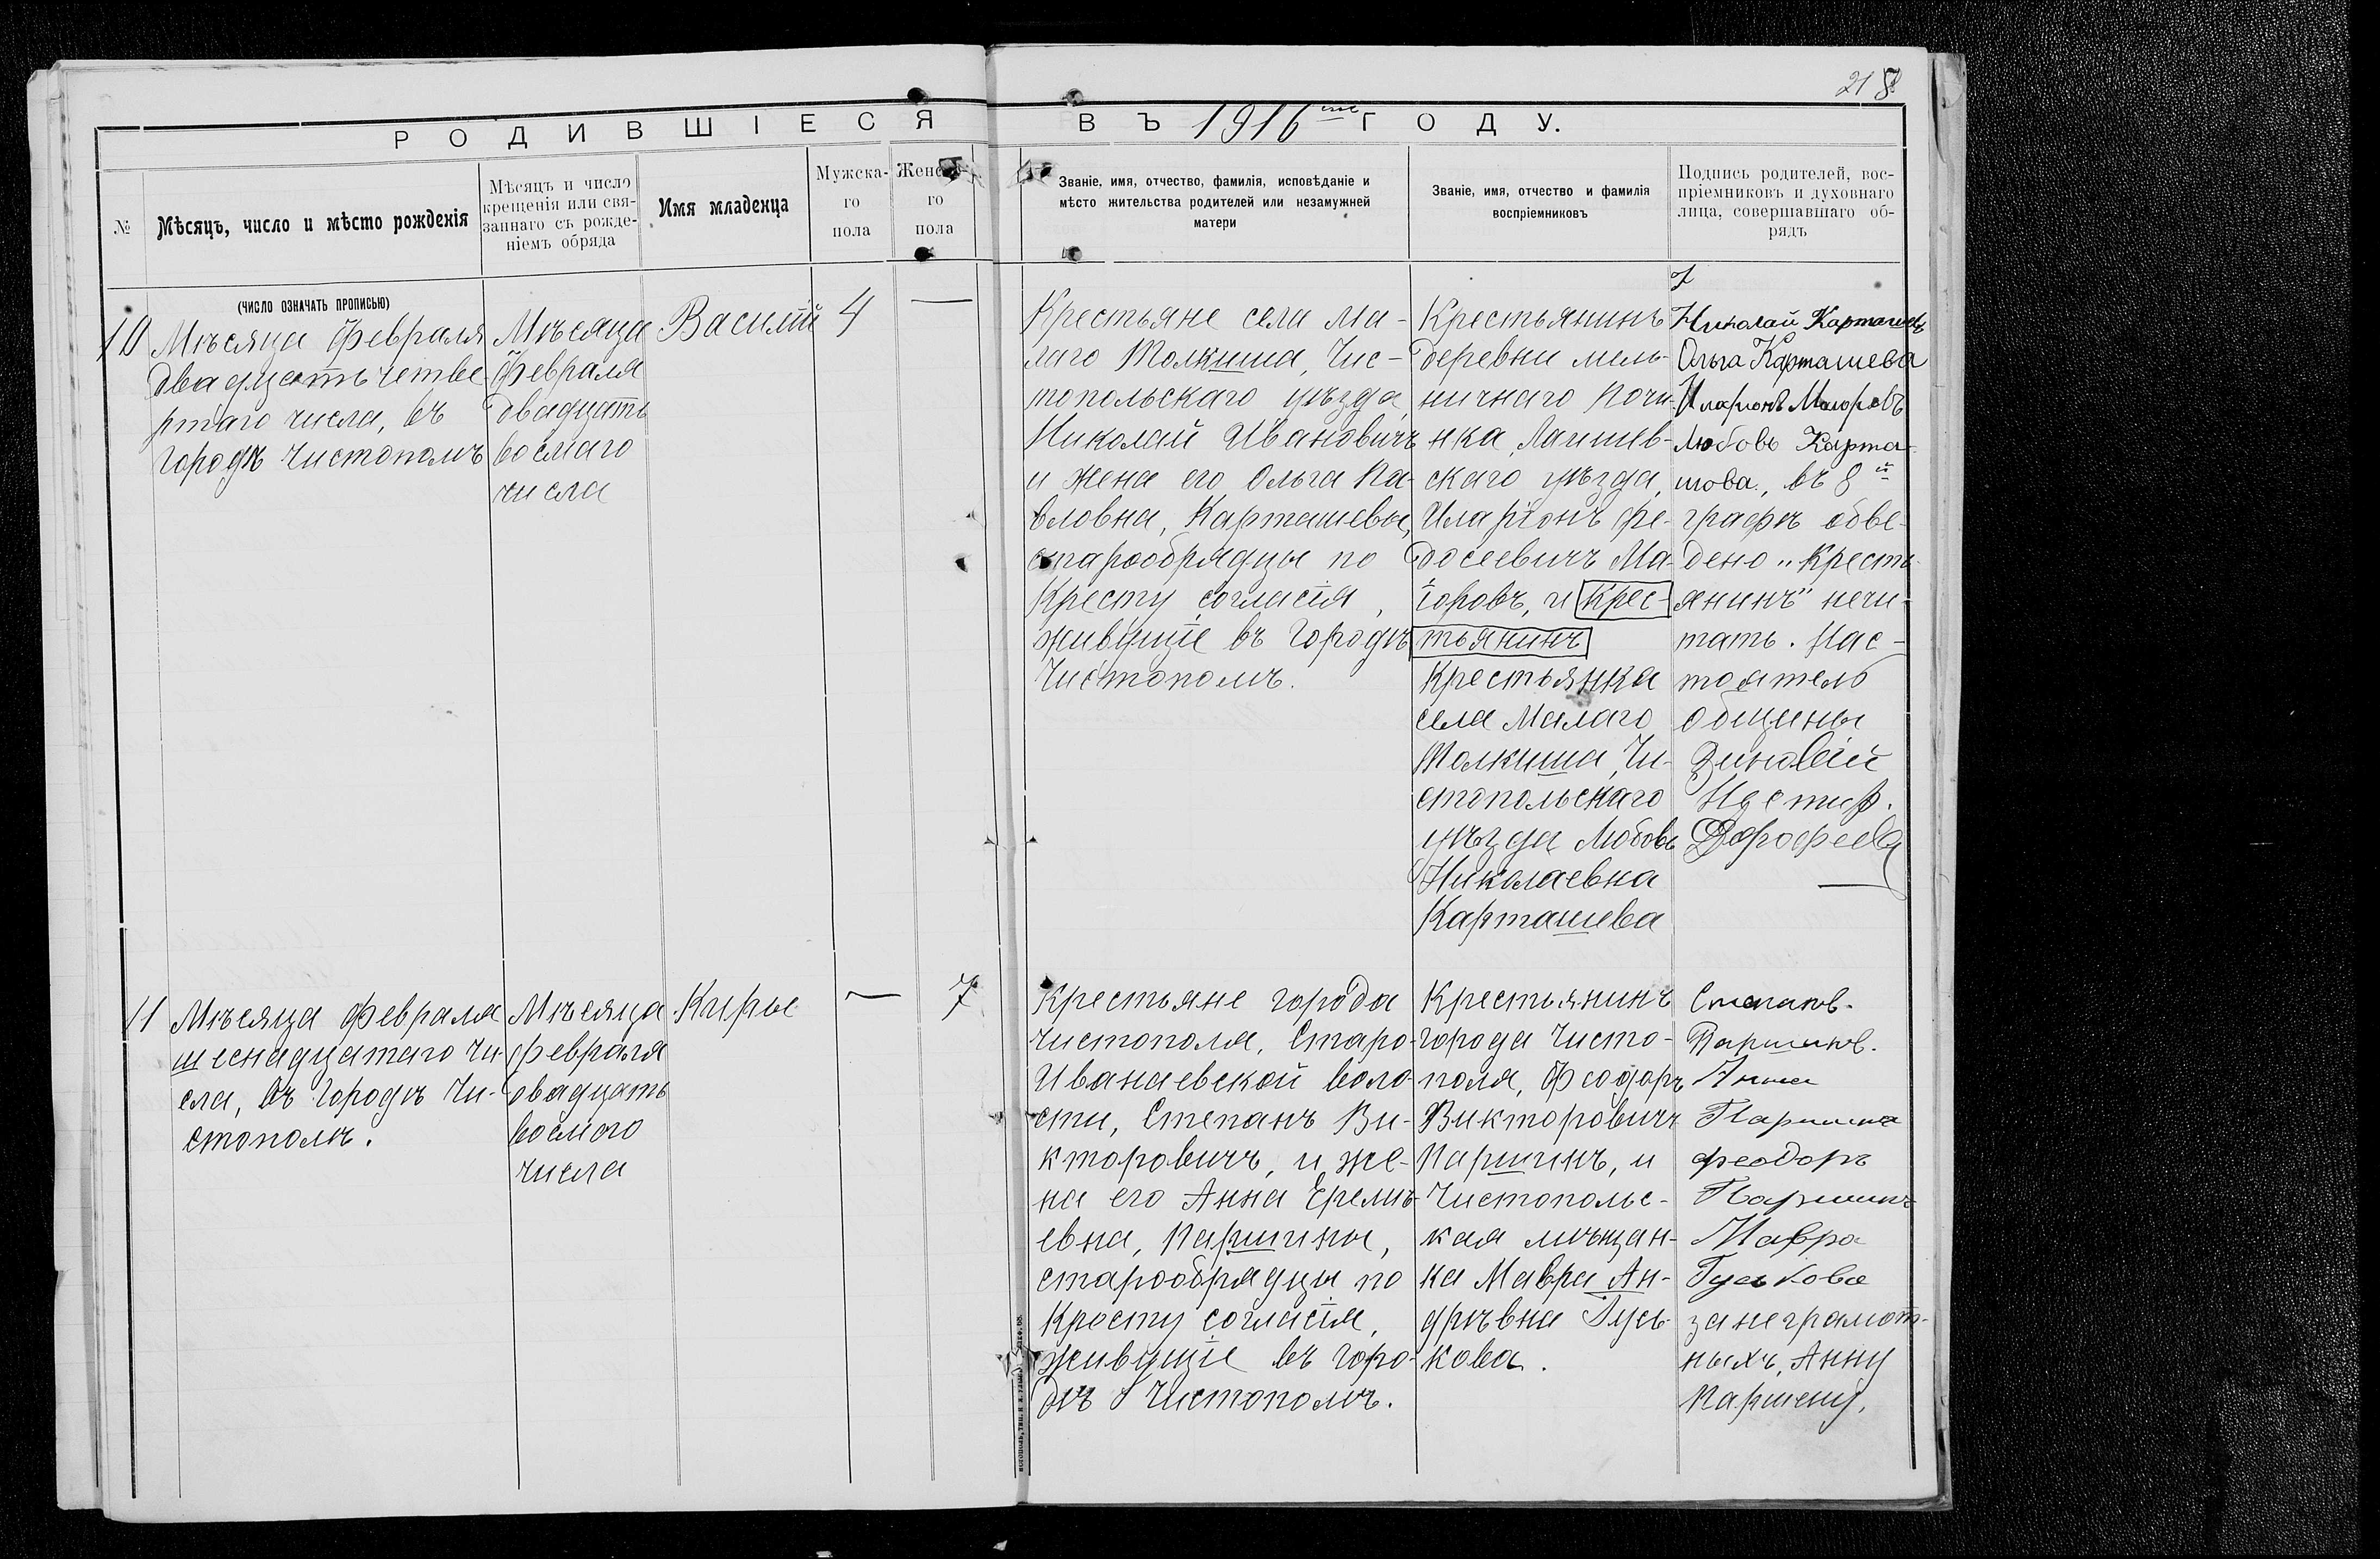 218
РОДИВШІЕСЯ ВЪ 1916мъ ГОДУ.
№
Мѣсяцъ, число и мѣсто рожденія
Мѣсяцъ и число
крещенія или свя-
заннаго съ рожде-
ніемъ обряда
Имя младенца
Мужска-
го
пола
Женска-
го
пола
Званіе, имя, отчество, фамилія, исповѣданіе и
мѣсто жительства родителей или незамужней
матери
Званіе, имя, отчество и фамилія
воспріемниковъ
Подпись родителей, вос-
пріемниковъ и духовнаго
лица, совершавшаго об-
рядъ
(ЧИСЛО ОЗНАЧАТЬ ПРОПИСЬЮ)
10
Мѣсяца Февраля
двадцать четве-
ртаго числа, въ
городѣ Чистополѣ
Мѣсяца
Февраля
двадцать
восмаго
числа
Василій
4
—
Крестьяне села Ма-
лаго Толкиша, Чис-
топольскаго уѣзда,
Николай Ивановичъ
и жена его Ольга Па-
вловна, Карташевы,
старообрядцы по
Кресту согласія,
живущіе въ городѣ
Чистополѣ.
Крестьянинъ
деревни мель-
ничнаго Почи-
нка, Лаишев-
скаго уѣзда,
Иларіонъ Фе-
досеевичъ Ма-
іоровъ, и крес-
тьянинъ
Крестьянка
села Малаго
Толкиша, Чи-
стопольскаго
уѣзда Любовь
Николаевна
Карташева
Николай Карташевъ
Ольга Карташева
Иларионъ Маиоровъ
Любовь Карта-
шова, въ 8й
графѣ обве-
дено "Кресть-
янинъ" нечи-
тать. Нас-
тоятель
общины
Зиновій
Дорофеевъ
11
Мѣсяца Февраля
шеснадцатаго чи-
сла, въ городѣ Чи-
стополѣ.
Мѣсяца
февраля
двадцать
восмого
числа
Киры
—
7
Крестьяне города
Чистополя, Старо-
Иванаевской воло-
сти, Степанъ Ви-
кторовичъ, и же-
на его Анна Еремѣ-
евна, Паршины,
старообрядцы по
Кресту согласія,
живущіе въ горо-
дѣ Чистополѣ.
Крестьянинъ
города Чисто-
поля, Феодоръ
Викторовичъ
Паршинъ, и
Чистопольс-
кая мѣщан-
ка Мавра Ан-
дрѣвна Гусь-
кова.
Степанъ
Паршинъ.
Анна
Паршина
феодоръ
Паршинъ
Мавра
Гуськова
за неграмот-
ныхъ, Анну
Паршену,